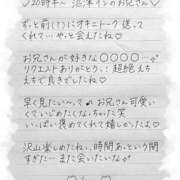 ♡20時半〜 沼津インのお兄さん♡
ずっと前(!)にオキニトーク送って
くれてて…やっと会えたね♡
お兄さんが好きな○○○○…
リクエストありがとう!!超絶えち
えちで良きでしたね♡
早く見たいって…♡お兄さん可愛く
ていじめたくなっちゃった笑
いっぱい褒めてくれて嬉しかったよ♡
沢山楽しめたね、、時間あっという間
すぎた…また会いたいな♡